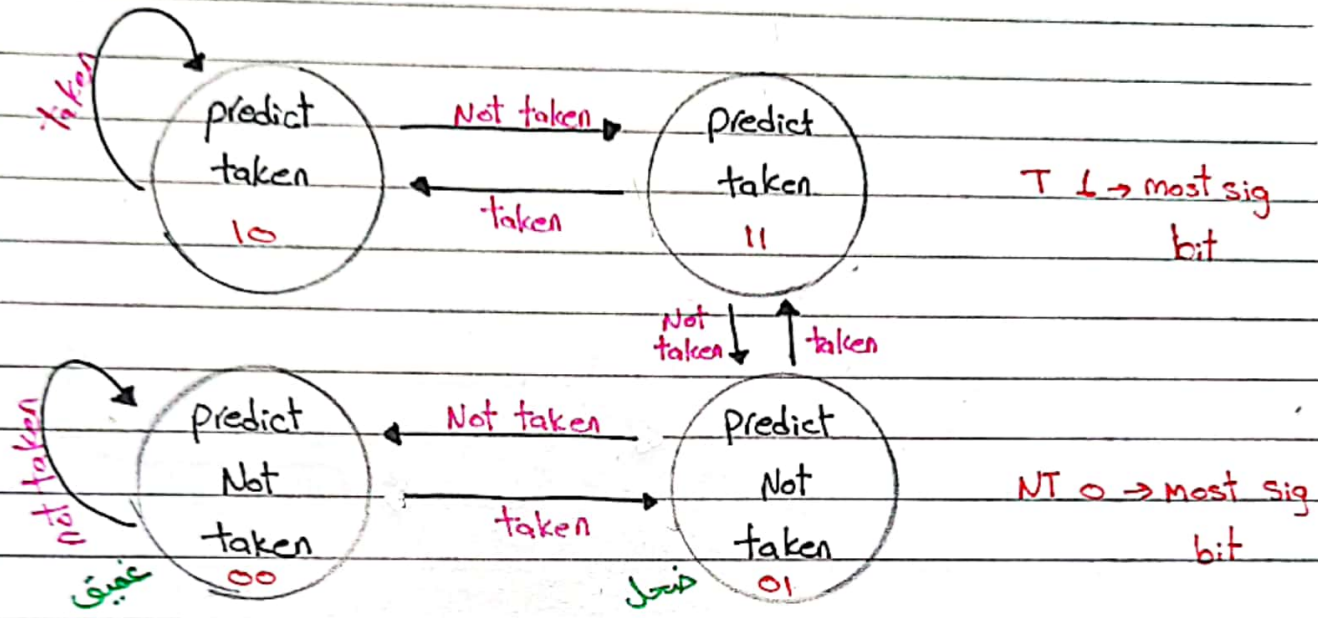 taken
predict
taken
10
Not taken
taken
predict
taken
11
T 1 → most sig
bit
Not
taken
taken
not taken
predict
Not
taken
00
عميق
Not taken
taken
predict
Not
taken
01
ضحل
NT 0 → most sig
bit